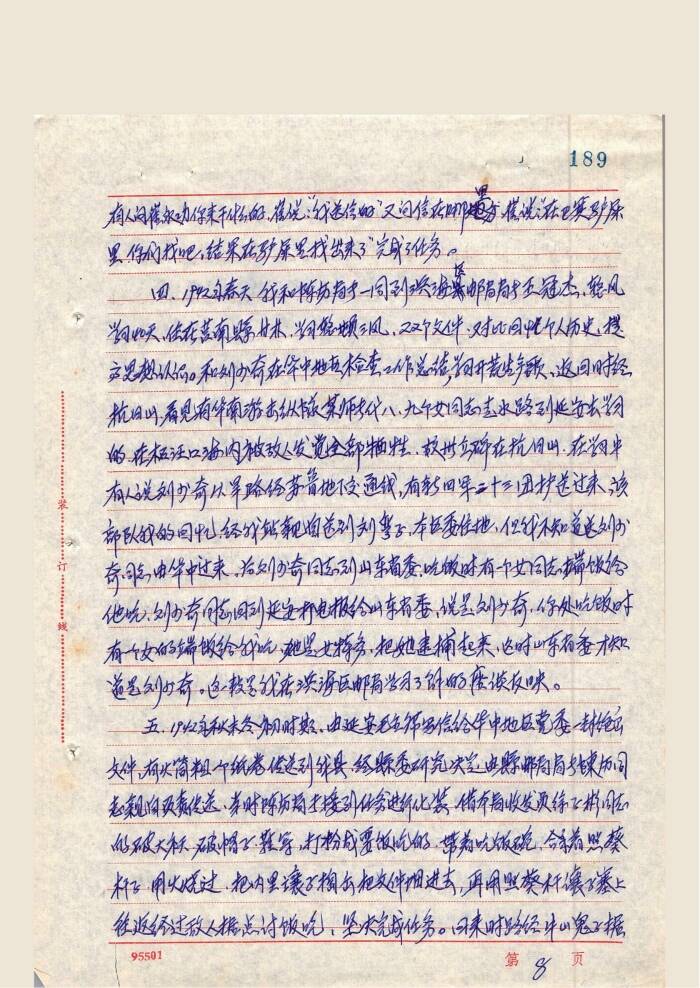 189
有人问崔永功你来干什么的，崔说：“我送信的”又问信在哪里，崔说：在卫生驴屎
里，你们找吧，结果在驴屎里找出来了，完成了任务。
四、1942年春天，我和陈历局长一同到滨海区邮局局长王冠杰，整风
学习40天，住在莒南县，学习整顿三风，22个文件，对比回忆个人历史，提
高思想认识。和刘少奇在华中地区检查工作总结，学习开荒生产歌，返回时经
抗日山，看见有华南游击纵队，八、九个女同志走水路到延安去学习
的，在柘汪口海内被敌人发觉全部牺牲，立碑在抗日山，在学习中
有人说刘少奇从旱路经苏鲁地下交通线，有新四军二十三团护送过来，该
部队我的回忆，经我站亲自送到区委住地，但我不知道送刘少
奇同志由华中过来。后刘少奇同志到山东省委，吃饭时有个女同志端饭给
他吃，刘少奇同志回到延安打电报给山东省委，说我是刘少奇，你处吃饭时
有个女的端饭给我吃，她是女特务，把她逮捕起来，这时山东省委才知
道是刘少奇。这段是我在滨海区邮局学习了解的座谈反映。
五、1942年秋末冬初时期，由延安毛主席写信给华中地区党委一封绝密
文件，有火筒粗一个纸卷传送到我县，经县委研究决定由县邮局局长陈历同
志亲自负责传送，当时陈历局长接到任务进行化装，借本局收发员徐同志
的破大袄、破帽子、鞋穿，打扮成要饭吃的，带着吃饭碗，合着照葵
杆子，用火烧过，把内里瓤子捅出把文件捆进去，再用照葵杆瓤子塞上
往返经过敌人据点讨饭吃，坚决完成任务。回来时路经牛山鬼子据
装订线
95501
第 8 页